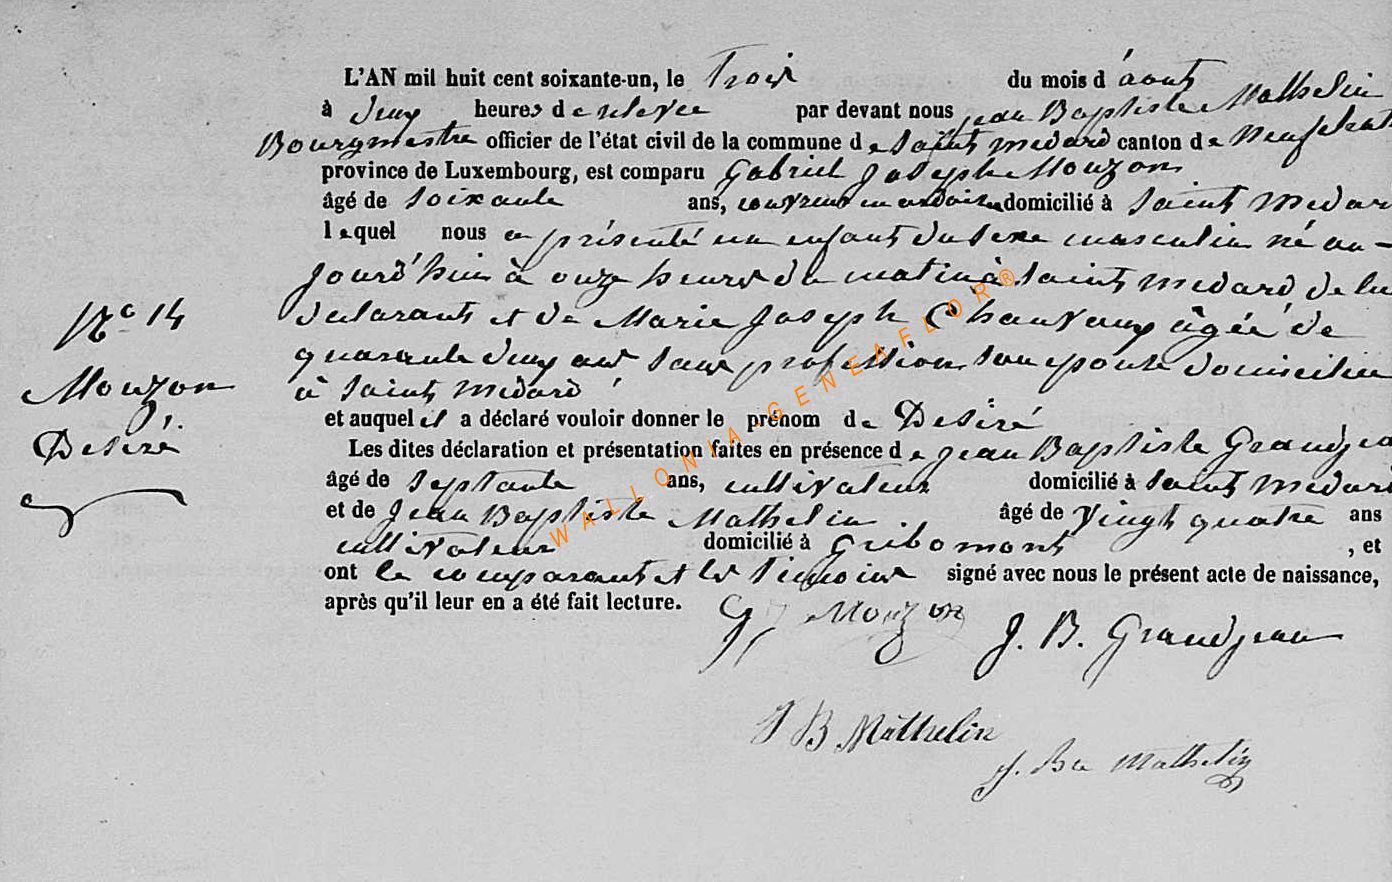 L'AN mil huit cent soixante-un, le Trois du mois d'août
à deux heures de relevée par devant nous jean Baptiste Mathelin
Bourgmestre officier de l'état civil de la commune de Saint medard canton de Neufchat
province de Luxembourg, est comparu Gabriel Joseph Mouzon
âgé de soixante ans, couvreur en ardoises domicilié à Saint medar
lequel nous a présenté un enfant du sexe masculin né au-
jourd'hui à onze heures du matin à Saint medard de lui
declarant et de Marie Joseph Chauvaux âgée de
quarante deux ans sans profession son epouse domiciliée
à Saint medard
N° 14
Mouzon
Desiré
et auquel il a déclaré vouloir donner le prénom de Desiré
Les dites déclaration et présentation faites en présence de jean Baptiste Grandjea
âgé de septante ans, cultivateur domicilié à Saint medard
et de Jean Baptiste Mathelin âgé de Vingt quatre ans
cultivateur domicilié à Gribomont , et
ont le comparant et les temoins signé avec nous le présent acte de naissance,
après qu'il leur en a été fait lecture.
G J Mouzon
J. B. Grandjean
J B Mathelin
J. Bte Mathelin
WALLONIA-GENEAFLOR®